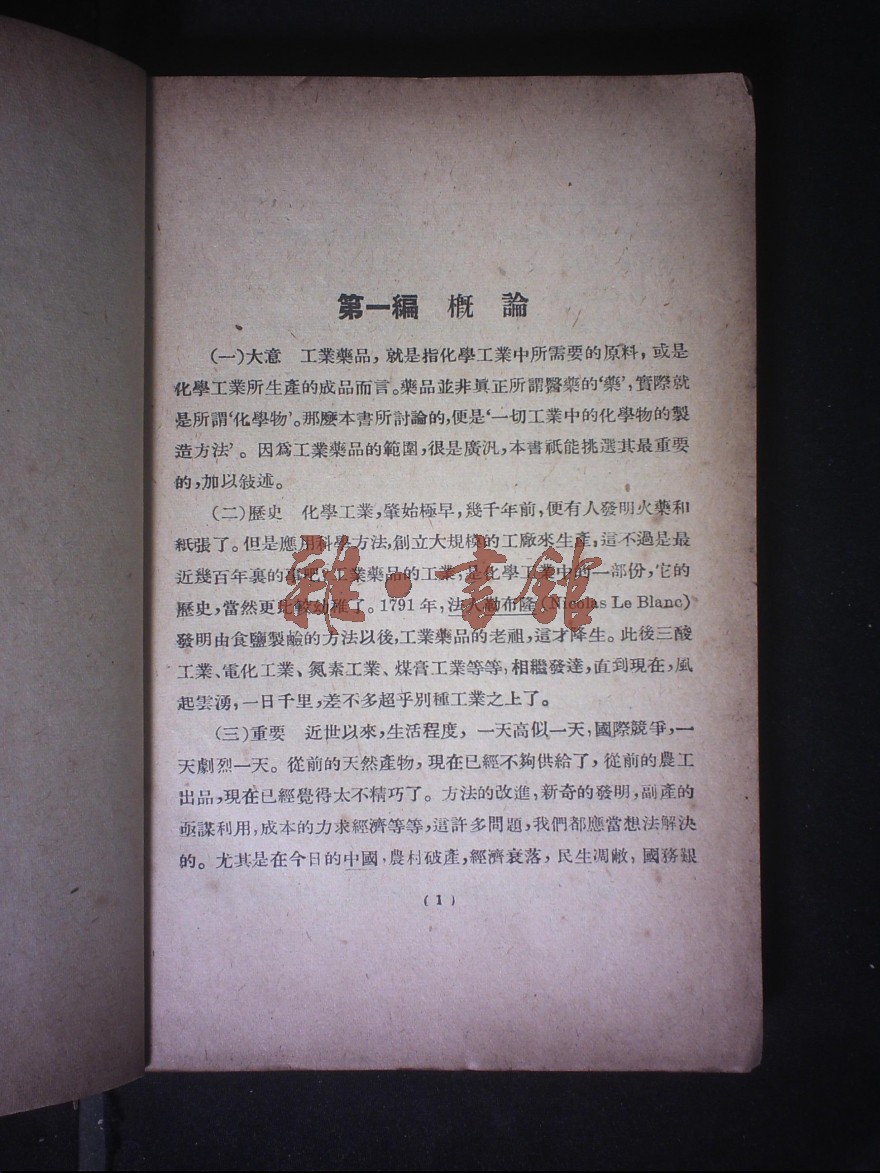 第一編 概論
(一)大意 工業藥品，就是指化學工業中所需要的原料，或是
化學工業所生產的成品而言。藥品並非眞正所謂醫藥的‘藥’，實際就
是所謂‘化學物’。那麼本書所討論的，便是‘一切工業中的化學物的製
造方法’。因爲工業藥品的範圍，很是廣汎，本書祇能挑選其最重要
的，加以敍述。
(二)歷史 化學工業，肇始極早，幾千年前，便有人發明火藥和
紙張了。但是應用科學方法，創立大規模的工廠來生產，這不過是最
近幾百年裏的事吧？工業藥品的工業，是化學工業中的一部份，它的
歷史，當然更比較幼稚了。1791年，法人勒布隆(Nicolas Le Blanc)
發明由食鹽製鹼的方法以後，工業藥品的老祖，這才降生。此後三酸
工業、電化工業、氮素工業、煤膏工業等等，相繼發達，直到現在，風
起雲湧，一日千里，差不多超乎別種工業之上了。
(三)重要 近世以來，生活程度，一天高似一天，國際競爭，一
天劇烈一天。從前的天然產物，現在已經不夠供給了，從前的農工
出品，現在已經覺得太不精巧了。方法的改進，新奇的發明，副產的
亟謀利用，成本的力求經濟等等，這許多問題，我們都應當想法解決
的。尤其是在今日的中國，農村破產，經濟衰落，民生凋敝，國務艱
(1)
雅·書館